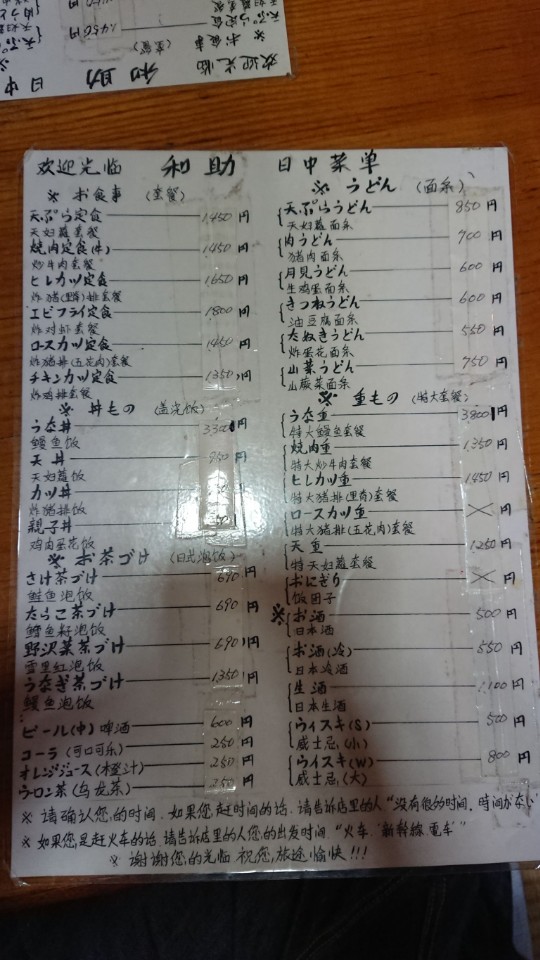 欢迎光临 和助 日中菜单
※ お食事 (套餐)
天ぷら定食 1,450円
天妇羅套餐
焼肉定食(牛) 1450円
炒牛肉套餐
ヒレカツ定食 1650円
炸猪(里脊)排套餐
エビフライ定食 1800円
炸对虾套餐
ロースカツ定食 1450円
炸猪排(五花肉)套餐
チキンカツ定食 1350円
炸鸡排套餐
※ 丼もの (盖浇饭)
うな丼 3,300円
鳗鱼饭
天丼 円
天妇羅饭
カツ丼 円
炸猪排饭
親子丼 円
鸡肉蛋花饭
※ お茶づけ (日式泡饭)
さけ茶づけ 690円
鲑鱼泡饭
たらこ茶づけ 690円
鳕鱼籽泡饭
野沢菜茶づけ 690円
雪里红泡饭
うなぎ茶づけ 1350円
鳗鱼泡饭
ビール(中) 啤酒 600円
コーラ(可口可乐) 250円
オレンジジュース(橙汁) 250円
ウーロン茶(乌龙茶) 250円
※ うどん (面条)
天ぷらうどん 850円
天妇羅面条
肉うどん 700円
猪肉面条
月見うどん 600円
生鸡蛋面条
きつねうどん 600円
油豆腐面条
たぬきうどん 550円
炸蛋花面条
山菜うどん 750円
山蕨菜面条
※ 重もの (特大套餐)
うな重 3800円
特大鳗鱼套餐
焼肉重 1,350円
特大炒牛肉套餐
ヒレカツ重 1,450円
特大猪排(里脊)套餐
ロースカツ重 円
特大猪排(五花肉)套餐
天重 1250円
特天妇羅套餐
おにぎり 円
饭团子
※お酒 500円
日本酒
お酒(冷) 550円
日本冷酒
生酒 1,100円
日本生酒
ウイスキ(S) 500円
威士忌(小)
ウイスキ(W) 800円
威士忌(大)
※ 请确认您的时间.如果您赶时间的话.请告诉店里的人"没有很的时间.時間がない"
※ 如果您是赶火车的话.请告诉店里的人您的出发时间."火车.新幹線.電车"
※ 谢谢您的光临 祝您,旅途愉快!!!